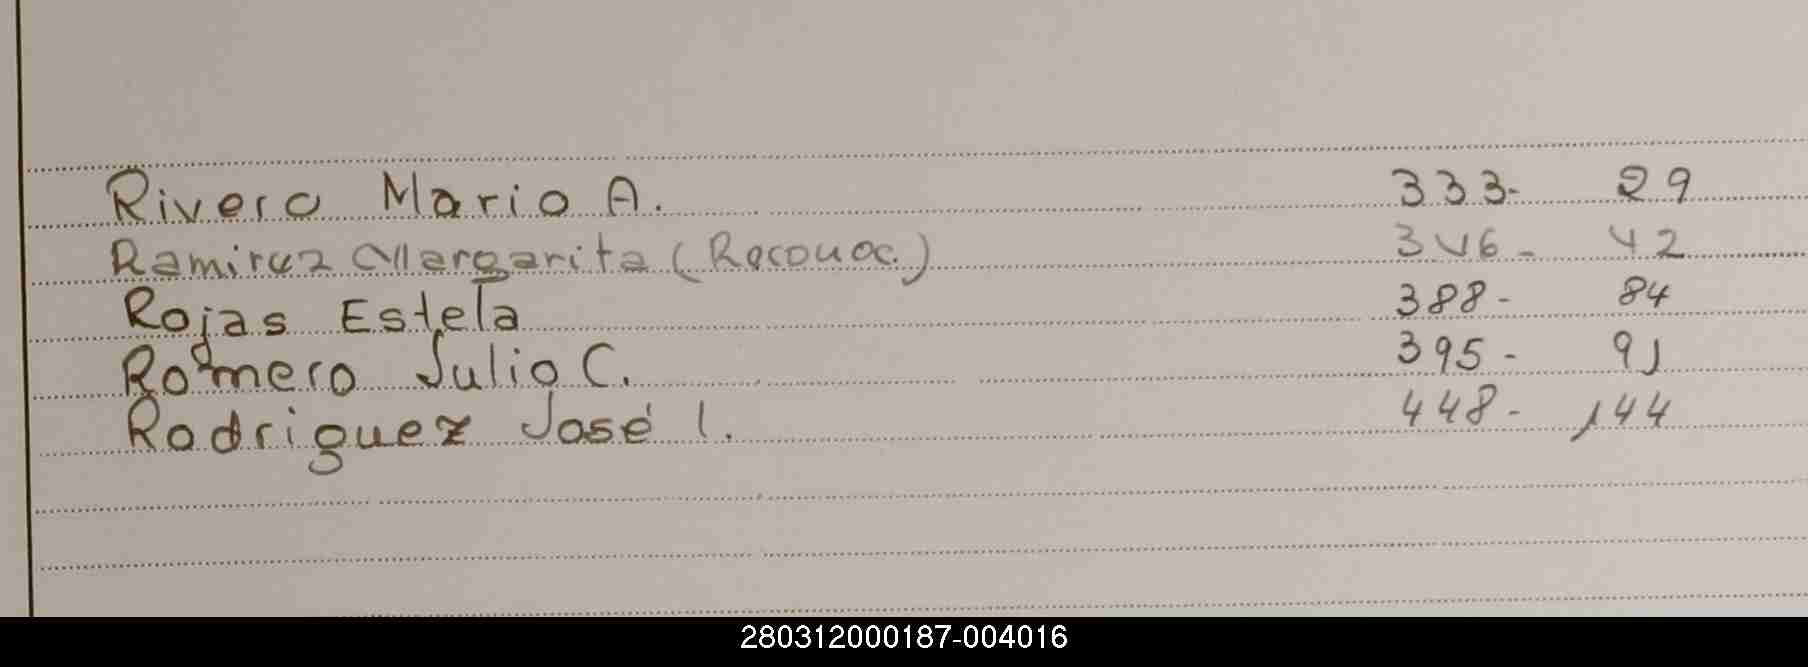 Rivero Mario A. 333- 29
Ramirez Margarita (Reconoc.) 346- 42
Rojas Estela 388- 84
Romero Julio C. 395- 91
Rodriguez José I. 448- 144
280312000187-004016